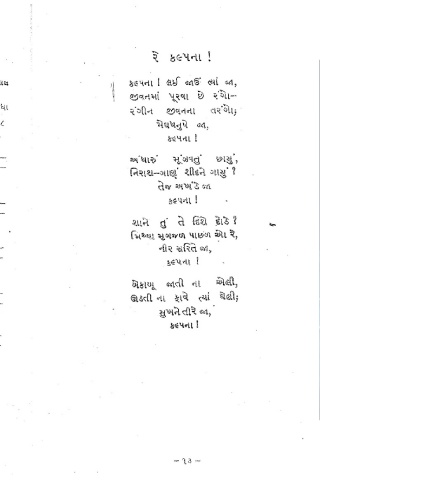 રે કલ્પના !
કલ્પના ! લઈ જાઉં ત્યાં જા,
જીવનમાં પૂરવા છે રંગો—
રંગીન જીવનના તરંગો;
મેઘધનુષે જા,
કલ્પના !
અંધારું મૂંઝવતું છાયું,
નિરાશ-ગાણું શીદને ગાયું ?
તેજ અખંડે જા
કલ્પના !
શાને તું તે દિશે દોડે ?
મિથ્યા મૃગજળ પાછળ ઓ રે,
નીર સરિતે જા,
કલ્પના !
બેકાબૂ જાતી ના એલી,
ઊડતી ના ફાવે ત્યાં ઘેલી;
સુખને તીરે જા,
કલ્પના !